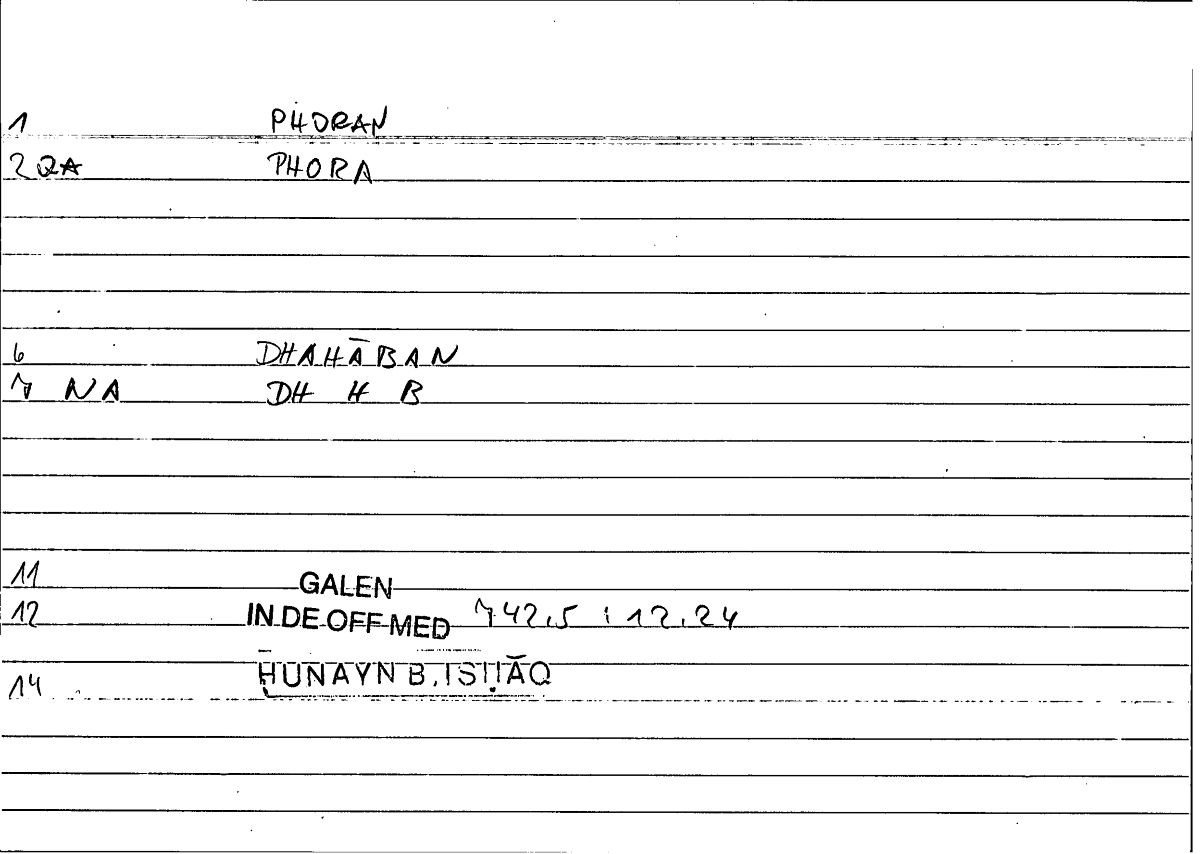 1 PHORAN
2 QA PHORA
6 DHAHĀBAN
7 NA DH H B
11 GALEN
12 IN DE OFF MED 742,5 : 12,24
14 ḤUNAYN B. ISḤĀQ